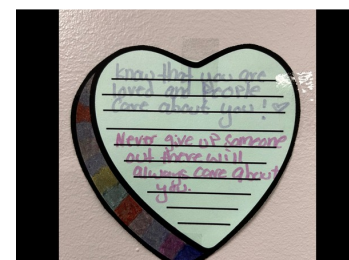 know that you are
loved and people
care about you! ♡
Never give up someone
out there will
always care about
you.